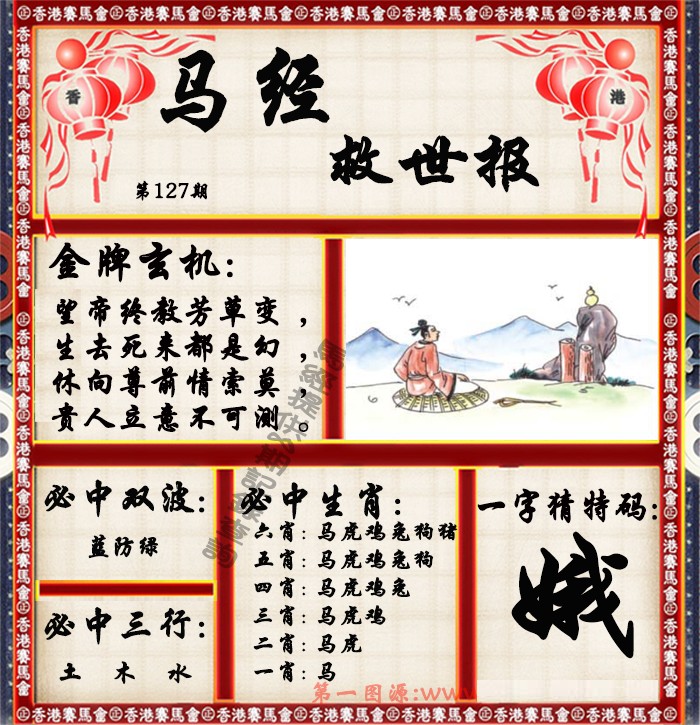 香港賽馬會
香
港
马经
救世报
第127期
金牌玄机：
望帝终教芳草变，
生去死来都是幻，
休向尊前情索莫，
贵人立意不可测。
必中双波：
蓝防绿
必中三行：
土 木 水
必中生肖：
六肖：马虎鸡兔狗猪
五肖：马虎鸡兔狗
四肖：马虎鸡兔
三肖：马虎鸡
二肖：马虎
一肖：马
一字猜特码：
娥
第一图源:www